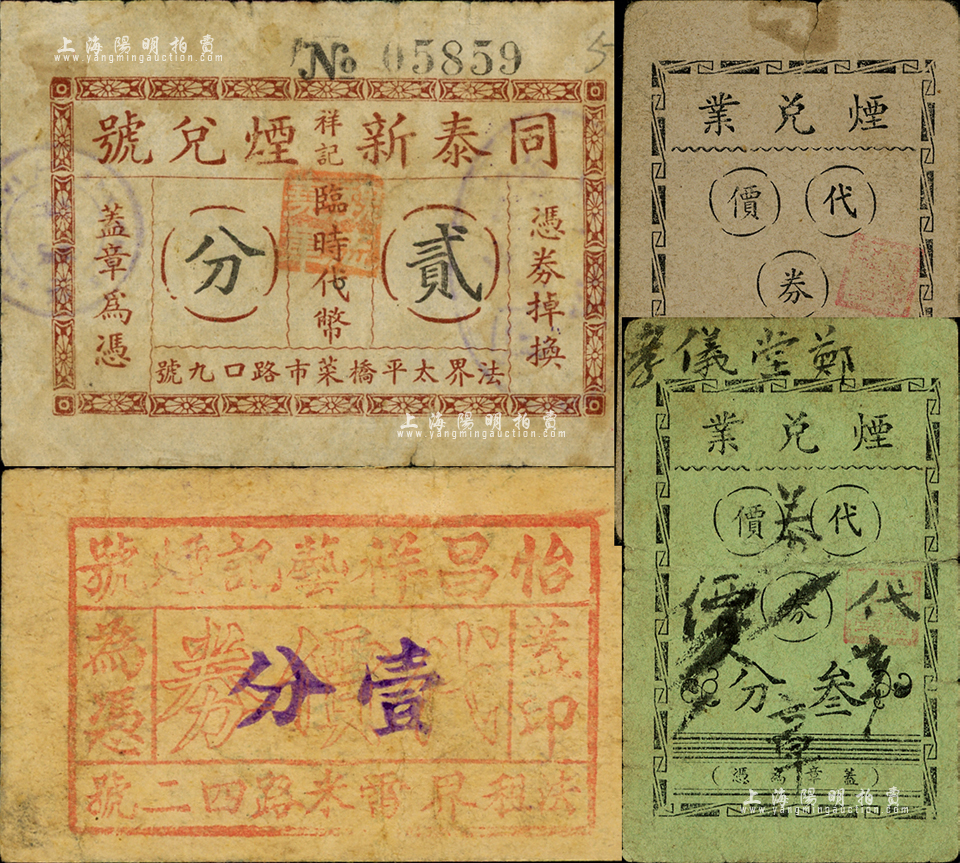 上海陽明拍賣
www.yangmingauction.com
№ 05859
同泰新祥記煙兌號
憑券掉換
貳分
臨時代幣
蓋章為憑
法界太平橋菜市路口九號
上海陽明拍賣
www.yangmingauction.com
上海陽明拍賣
www.yangmingauction.com
煙兌業
代價
券
鄭堂儀
煙兌業
代價
券
代價
叁分
章
（蓋章為憑）
上海陽明拍賣
www.yangmingauction.com
怡昌祥藝記煙號
蓋印
代價券
壹分
為憑
法租界雷米路四二號